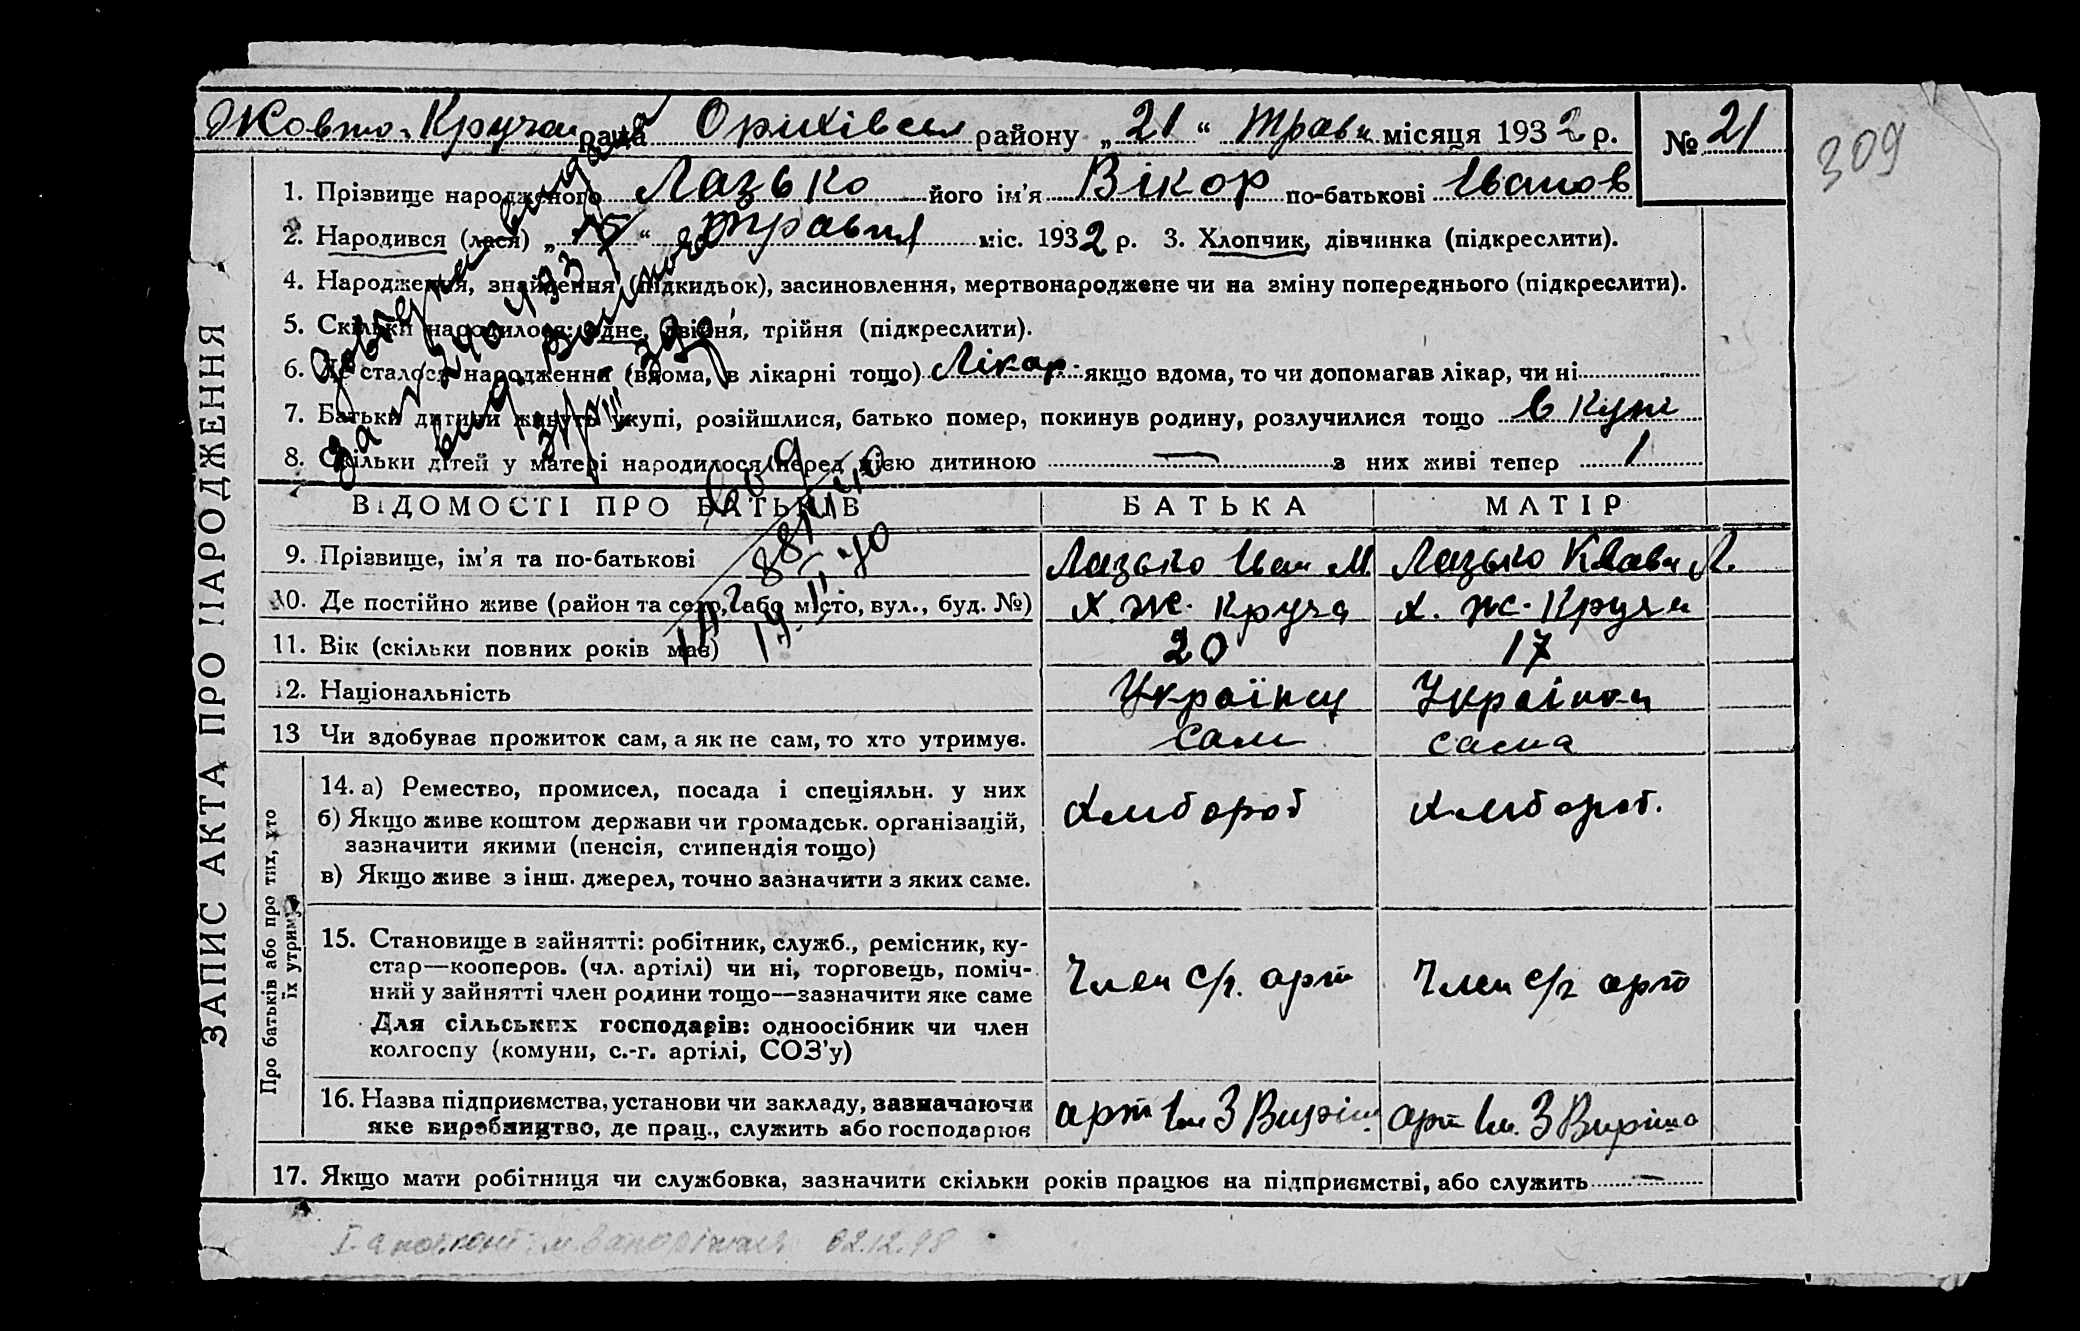 Жовто-Кручан рада Оріхівськ району „21“ Травн місяця 1932 р. № 21
309
1. Прізвище народженого Лазько його ім'я Вікор по-батькові Іванов
2. Народився (лася) „15“ травня міс. 1932 р. 3. Хлопчик, дівчинка (підкреслити).
4. Народження, знайдення (підкидьок), засиновлення, мертвонароджене чи на зміну попереднього (підкреслити).
5. Скільки народилося: одне, двійня, трійня (підкреслити).
6. Де сталося народження (вдома, в лікарні тощо) Лікар. якщо вдома, то чи допомагав лікар, чи ні
7. Батьки дитини живуть укупі, розійшлися, батько помер, покинув родину, розлучилися тощо в купі
8. Скільки дітей у матері народилося перед цією дитиною — з них живі тепер 1
ВІДОМОСТІ ПРО БАТЬКІВ БАТЬКА МАТІР
9. Прізвище, ім'я та по-батькові Лазько Іван М Лазько Клавд Л.
10. Де постійно живе (район та село, або місто, вул., буд. №) Х. Ж. Круча Х. Ж. Круча
11. Вік (скільки повних років має) 20 17
12. Національність Українц Українка
13 Чи здобуває прожиток сам, а як не сам, то хто утримує. Сам сама
14. а) Ремество, промисел, посада і спеціяльн. у них Хлібороб Хлібороб.
б) Якщо живе коштом держави чи громадськ. організацій,
зазначити якими (пенсія, стипендія тощо)
в) Якщо живе з інш. джерел, точно зазначити з яких саме.
15. Становище в зайнятті: робітник, служб., ремісник, ку-
стар—кооперов. (чл. артілі) чи ні, торговець, поміч-
ний у зайнятті член родини тощо—зазначити яке саме Член с/г. арт Член с/г арт
Для сільських господарів: одноосібник чи член
колгоспу (комуни, с.-г. артілі, СОЗ'у)
16. Назва підприємства, установи чи закладу, зазначаючи
яке виробництво, де прац., служить або господарює арт Ім 3 Виріш. арт Ім. 3 Виріша
17. Якщо мати робітниця чи службовка, зазначити скільки років працює на підприємстві, або служить —
ЗАПИС АКТА ПРО НАРОДЖЕННЯ
Про батьків або про тих, хто
їх утримує
02.12.98